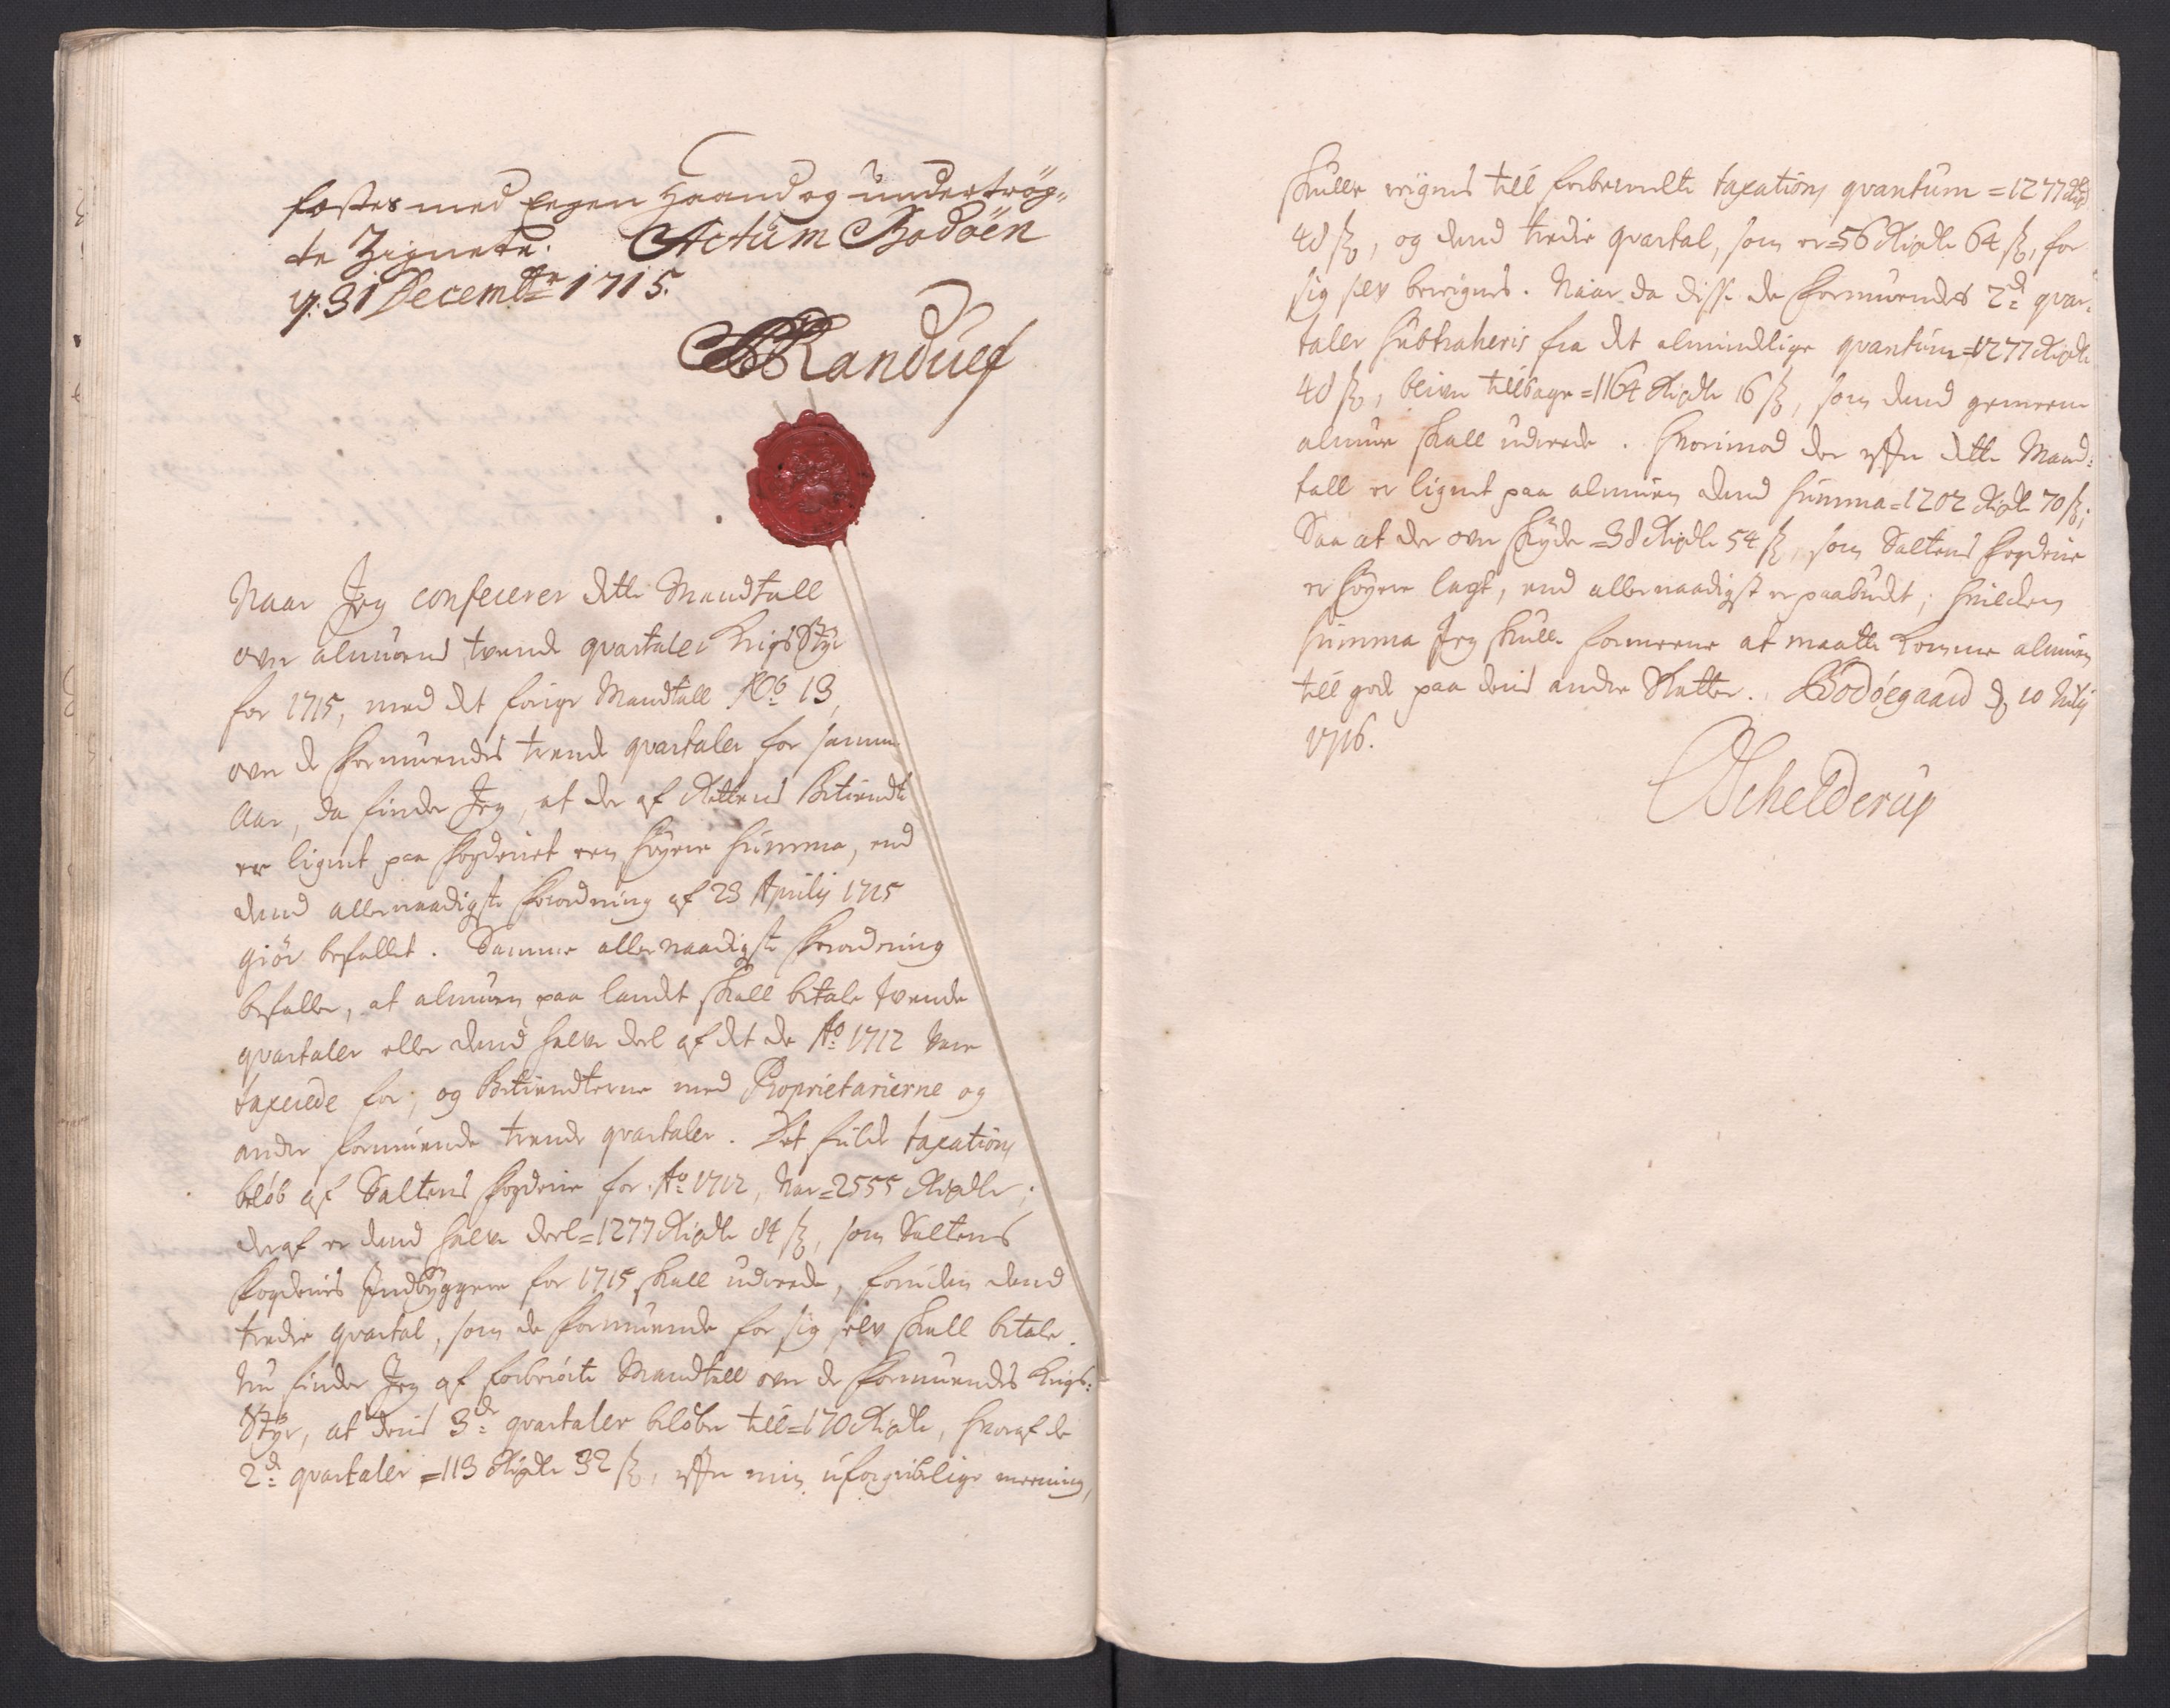 fæstes med Eegen Haand og undertrög„
te Zignete. Actum Bodöen
d: 31 Decembr 1715.
Randulf
Naar Jeg confererer dette Mandtall
over almuens tvende qvartaler KrigsStyr
for 1715, med det forige Mandtall No 13,
over de Formuendes trende qvartaler for samme
Aar, da finder Jeg, at der af Rettens Betiendte
er lignet paa Fogderiet een høyere summa, end
dend allernaadigste Forordning af 23 Aprilij 1715
giör befallet. Samme allernaadigste Forordning
befaller, at almuen paa landet skall betale tvende
qvartaler eller dend halve deel af det de Ao 1712 vare
taxerede for, og Betiendterne med Proprietarierne og
andre formuende trende qvartaler. Det fulde taxations
beløb af Saltens Fogderie for Ao 1712, var = 2555 Rixdlr;
deraf er dend halve deel = 1277 Rixdlr 84 ß, som Saltens
Fogderies Indbyggere for 1715 skall udreede, foruden dend
tredie qvartal, som de formuende for sig selv skall betale.
Nu finder Jeg af forberørte Mandtall over de formuendes Krigs:
Styr, at deris 3de qvartaler beløber till = 170 Rixdlr, hvoraf de
2de qvartaler = 113 Rixdlr 32 ß, efter min uforgribelige meening,
skulle reignes till forbemelte taxations qvantum = 1277 Rixdlr
48 ß, og dend tredie qvartal, som er = 56 Rixdlr 64 ß, for
sig selv bereignes. Naar da disse de Formuendes 2de qvar-
taler subtraheris fra det almindelige qvantum = 1277 Rixdlr
48 ß, bliver tilbage = 1164 Rixdlr 16 ß, som dend gemeene
almue skall udreede. Hvorimod der efter dette Mand:
tall er lignet paa almuen dend summa = 1202 Rixdlr 70 ß;
Saa at der over skyder = 38 Rixdlr 54 ß, som Saltens Fogderie
er høyere lagt, end allernaadigst er paabudet; hvilcken
summa Jeg skulle formeene at maatte komme almuen
till gode paa deris andre Skatter. Bodöegaard d 10 Julij
1716.
Schelderup